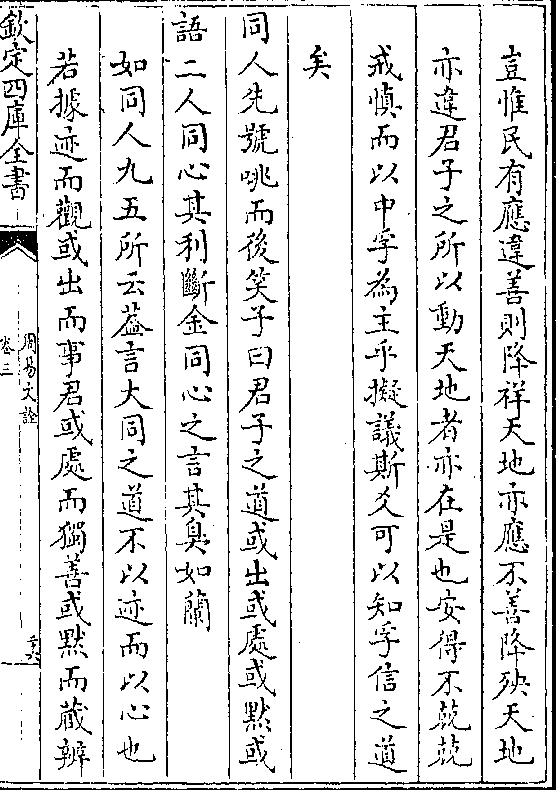 豈惟民有應違善則降祥天地亦應不善降殃天地
亦違君子之所以動天地者亦在是也安得不兢兢
戒慎而以中孚為主乎擬議斯爻可以知孚信之道
矣
同人先號咷而後笑子曰君子之道或出或處或黙或
語二人同心其利斷金同心之言其臭如蘭
如同人九五所云葢言大同之道不以迹而以心也
若據迹而觀或出而事君或處而獨善或黙而蔵辨
欽定四庫全書
周易文詮
卷三